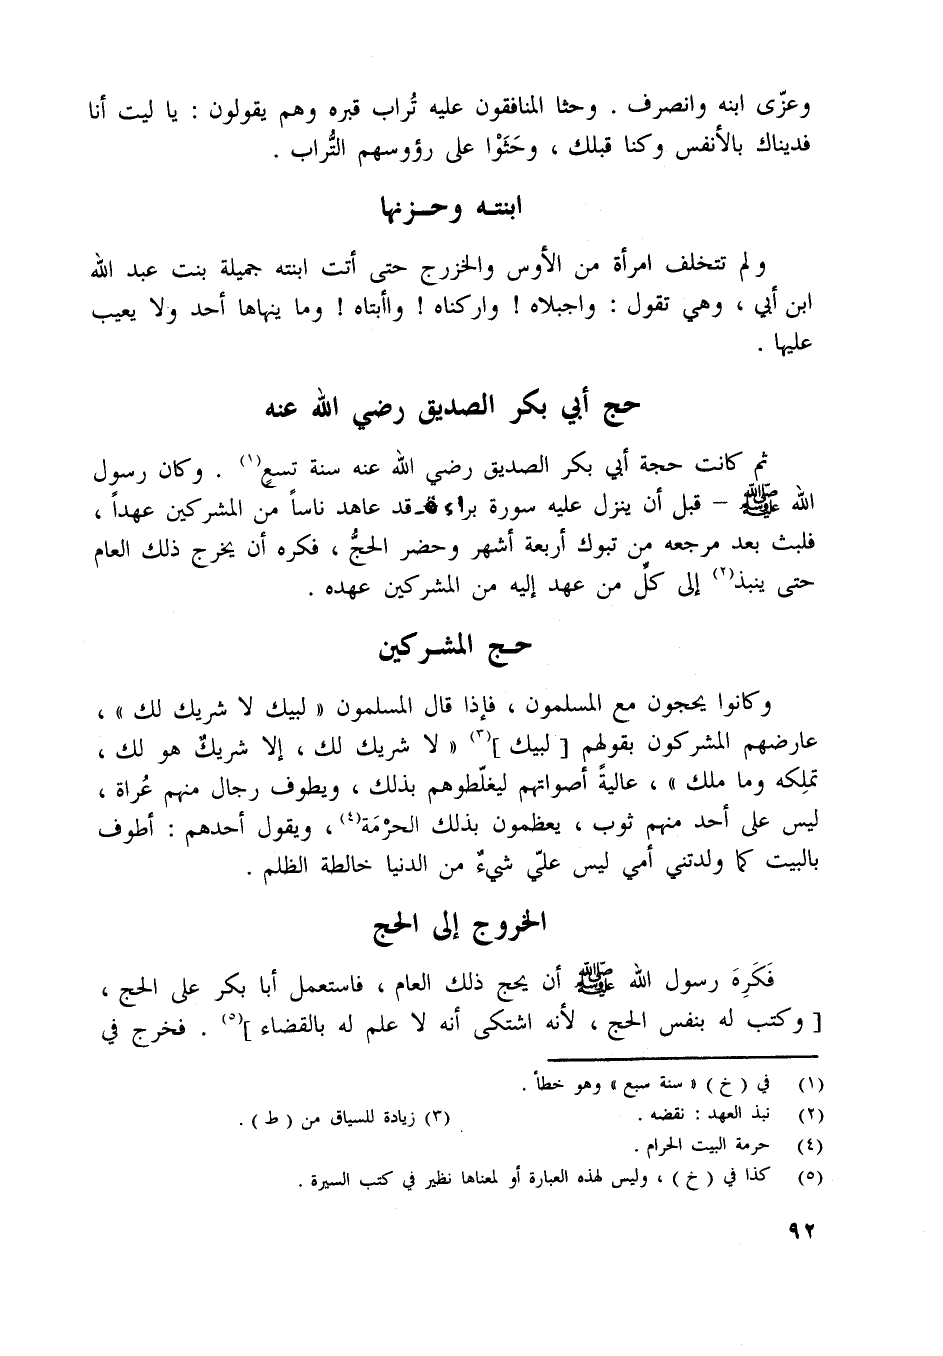 وعزّى ابنه وانصرف . وحثا المنافقون عليه تُراب قبره وهم يقولون : يا ليت أنا
فديناك بالأنفس وكنا قبلك ، وحَثَوْا على رؤوسهم التُّراب .
ابنتـه وحـزنها
ولم تتخلف امرأة من الأوس والخزرج حتى أتت ابنته جميلة بنت عبد الله
ابن أبي ، وهي تقول : واجبلاه ! واركناه ! واأبتاه ! وما ينهاها أحد ولا يعيب
عليها .
حج أبي بكر الصديق رضي الله عنه
ثم كانت حجة أبي بكر الصديق رضي الله عنه سنة تسعٍ(١) . وكان رسول
الله ﷺ – قبل أن ينزل عليه سورة براءة ـ قد عاهد ناساً من المشركين عهداً ،
فلبث بعد مرجعه من تبوك أربعة أشهر وحضر الحجُّ ، فكره أن يخرج ذلك العام
حتى ينبذ(٢) إلى كلٍّ من عهد إليه من المشركين عهده .
حـج المشـركين
وكانوا يحجون مع المسلمون ، فإذا قال المسلمون « لبيك لا شريك لك » ،
عارضهم المشركون بقولهم [ لبيك ](٣) « لا شريك لك ، إلا شريكٌ هو لك ،
تملِكه وما ملك » ، عاليةً أصواتهم ليغلّطوهم بذلك ، ويطوف رجال منهم عُراة ،
ليس على أحد منهم ثوب ، يعظمون بذلك الحرْمَة(٤) ، ويقول أحدهم : أطوف
بالبيت كما ولدتني أمي ليس عليّ شيءٌ من الدنيا خالطة الظلم .
الخروج إلى الحج
فَكَرِهَ رسول الله ﷺ أن يحج ذلك العام ، فاستعمل أبا بكر على الحج ،
[ وكتب له بنفس الحج ، لأنه اشتكى أنه لا علم له بالقضاء ](٥) . فخرج في
(١) في ( خ ) « سنة سبع » وهو خطأ .
(٢) نبذ العهد : نقضه . (٣) زيادة للسياق من ( ط ) .
(٤) حرمة البيت الحرام .
(٥) كذا في ( خ ) ، وليس لهذه العبارة أو لمعناها نظير في كتب السيرة .
٩٢